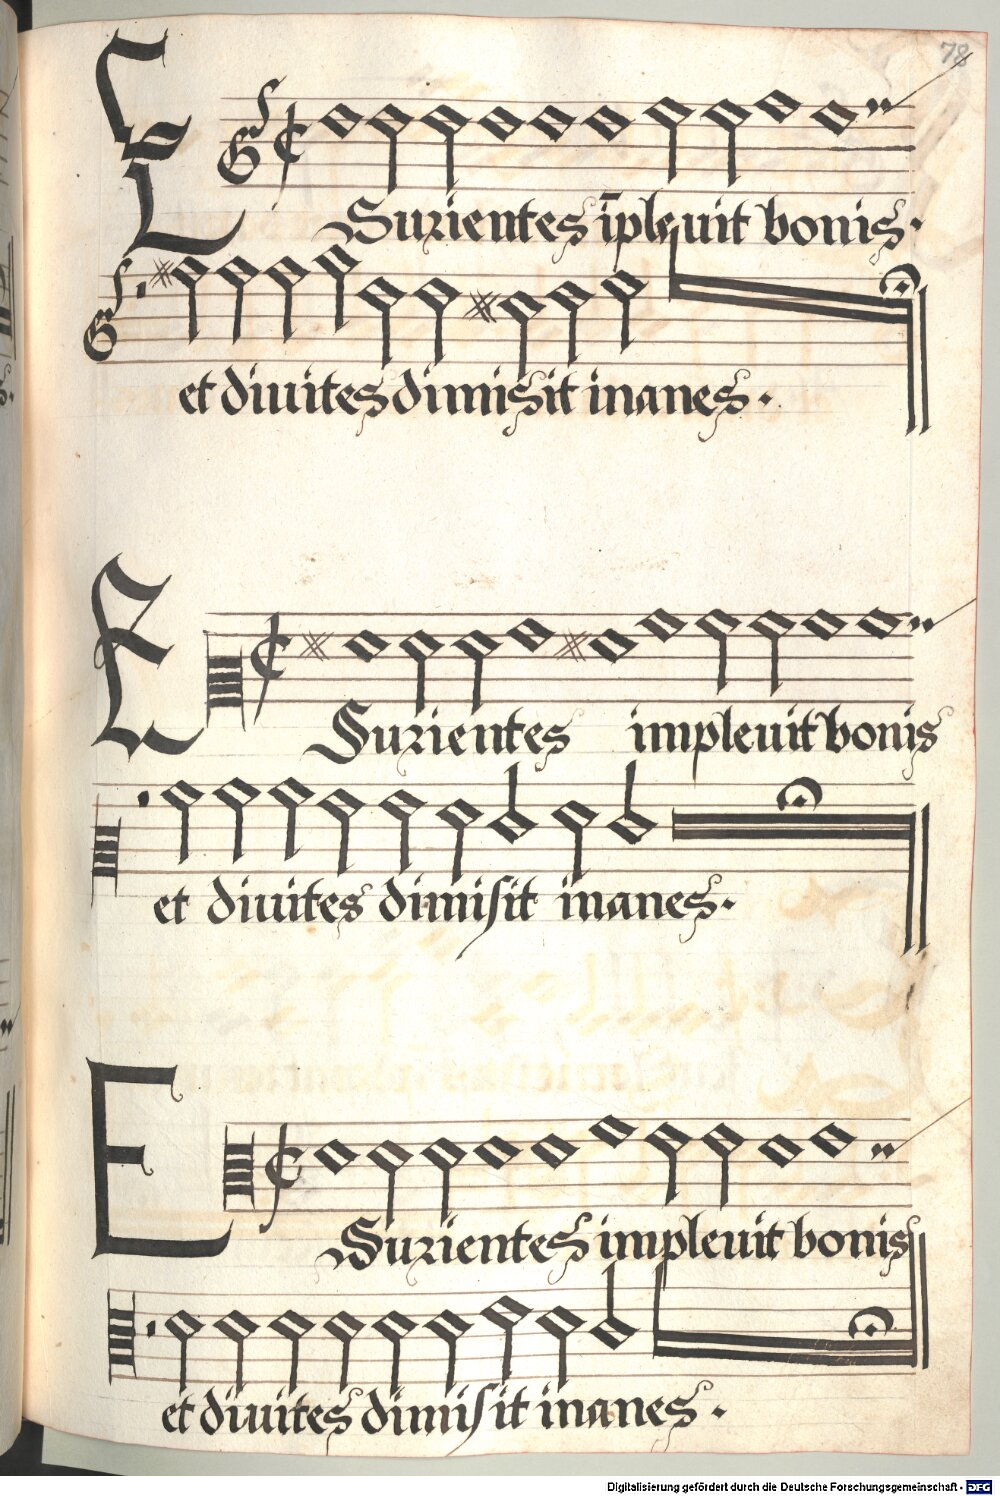 78
Esurientes īpleuit bonis.
et diuites dimisit inanes.
Esurientes impleuit bonis
et diuites dimisit inanes.
Esurientes impleuit bonis
et diuites dimisit inanes.
Digitalisierung gefördert durch die Deutsche Forschungsgemeinschaft - DFG